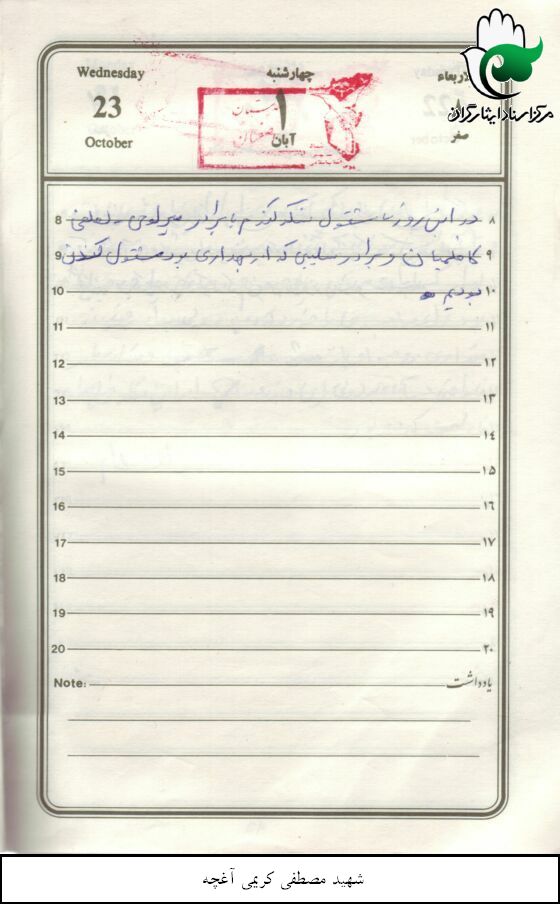 Wednesday چهارشنبه الاربعاء
23 ۱ ۸
October آبان صفر
مرکز اسناد ایثارگران
8 در این روز ما مشغول سنگر کندن با برادر ۸
9 کاظمیان و برادر سلیمی که از بهداری بود مشغول کندن ۹
10 بودیم ۱۰
11 ۱۱
12 ۱۲
13 ۱۳
14 ۱۴
15 ۱۵
16 ۱۶
17 ۱۷
18 ۱۸
19 ۱۹
20 ۲۰
Note: یادداشت
شهید مصطفی کریمی آغچه